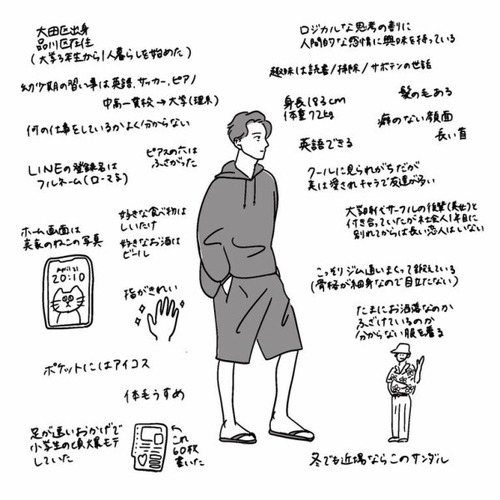 大田区出身
品川区在住
(大学3年生から1人暮らしを始めた)
幼少期の習い事は英語、サッカー、ピアノ
中高一貫校→大学(理系)
何の仕事をしているかよく分からない
LINEの登録名は
フルネーム(ローマ字)
ピアスの穴は
ふさがった
ホーム画面は
実家のねこの写真
April 21
20:10
好きな食べ物は
しいたけ
好きなお酒は
ビール
指がきれい
ポケットにはアイコス
体毛うすめ
足が速いおかげで
小学生の頃大爆モテ
していた
これ
60枚
書いた
ロジカルな思考の割りに
人間的な感情に興味を持っている
趣味は読書/掃除/サボテンの世話
身長183cm
体重72kg
髪の毛ある
癖のない顔面
英語できる
長い首
クールに見られがちだが
実は愛されキャラで友達が多い
大学時代サークルの後輩(美女)と
付き合っていたが社会人1年目に
別れてからは長い恋人はいない
こっそりジム通いまくって鍛えている
(骨格が細身なので目立たない)
たまにお洒落なのか
ふざけているのか
分からない服を着る
冬でも近場ならこのサンダル